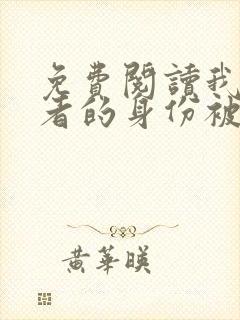 免費閱讀我
者的身份被
黃華暎